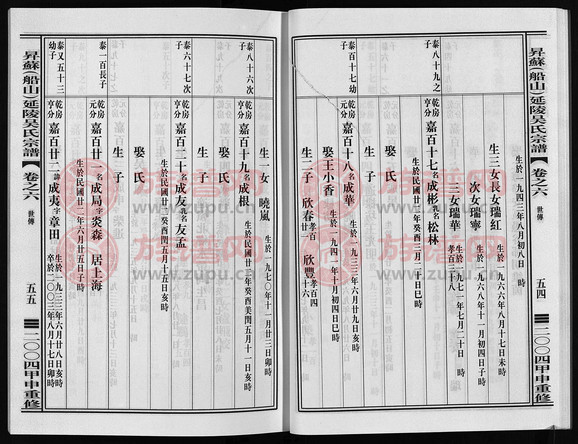 昇蘇（船山）延陵吳氏宗譜
卷之六
世傳
五四
二〇〇四甲申重修
生於一九四三年八月初八日 時
生三女長女瑞紅 生於一九六六年八月十七日未時
次女瑞寧 生於一九六八年十一月初四日子時
三女瑞華 生於一九七一年七月二十日 時
孝百三十八
泰八十九之子
乾房亨分 嘉百十七名成彬乳名松林 生於民國廿二年癸酉三月二十日巳時
娶 氏
生 子
泰百十七幼子
乾房亨分 嘉百十八名成華 生於一九三三年六月廿九日亥時
娶王小香 生於一九四一年十月初四日巳時
生 子 欣春孝百廿一 欣豐孝百四十六
昇蘇（船山）延陵吳氏宗譜
卷之六
世傳
五五
二〇〇四甲申重修
生一女 曉嵐 生於一九七〇年十一月廿三日卯時
泰八十六次子
乾房亨分 嘉百十九名成根 生於民國廿二年癸酉五月十一日亥時
娶 氏
生 子
泰六十七次子
乾房亨分 嘉百二十名成友乳名友孟
生於民國廿二年癸酉閏五月十五日亥時
娶 氏
生 子
泰一百長子
乾房元分 嘉百廿一名成局字炎森 居上海
生於民國廿二年六月廿五日子時
泰又五十三幼子
乾房亨分 嘉百廿二諱成夷字章田 生於一九三三年六月廿八日亥時
卒於二〇〇三年八月十七日卯時
族譜网
www.zupu.cn
族譜网
www.zupu.cn